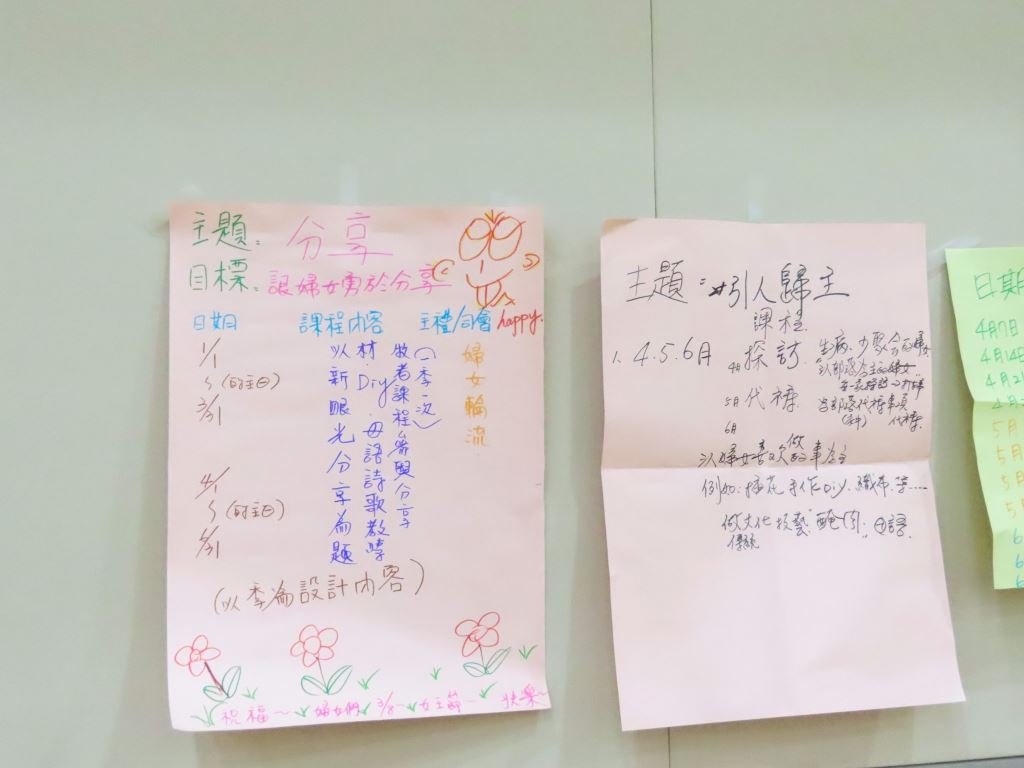 主題：分享
目標：讓婦女勇於分享
happy.
日期
課程內容
主禮/司會
1/1
(每主日)
3/31
4/1
(每主日)
6/31
牧者課程參與分享(一季一次)
材．Diy．母語詩歌教學
以新眼光分享為題
婦女輪流
(以季為設計內容)
祝福～婦女們 3/8～女主節 快樂～
主題：引人歸主
課程
1. 4.5.6月
4月 探訪
生病、少聚會的婦女
5月 代禱
代禱事項
代禱
6月
以婦女喜歡做的事為主
例如：插花 手作DiY. 織布.等……
做文化技藝 醃肉. 母語.
傳統
日期
4月7日
4月14日
4月2
5月
5月
5月
5
6
6
6